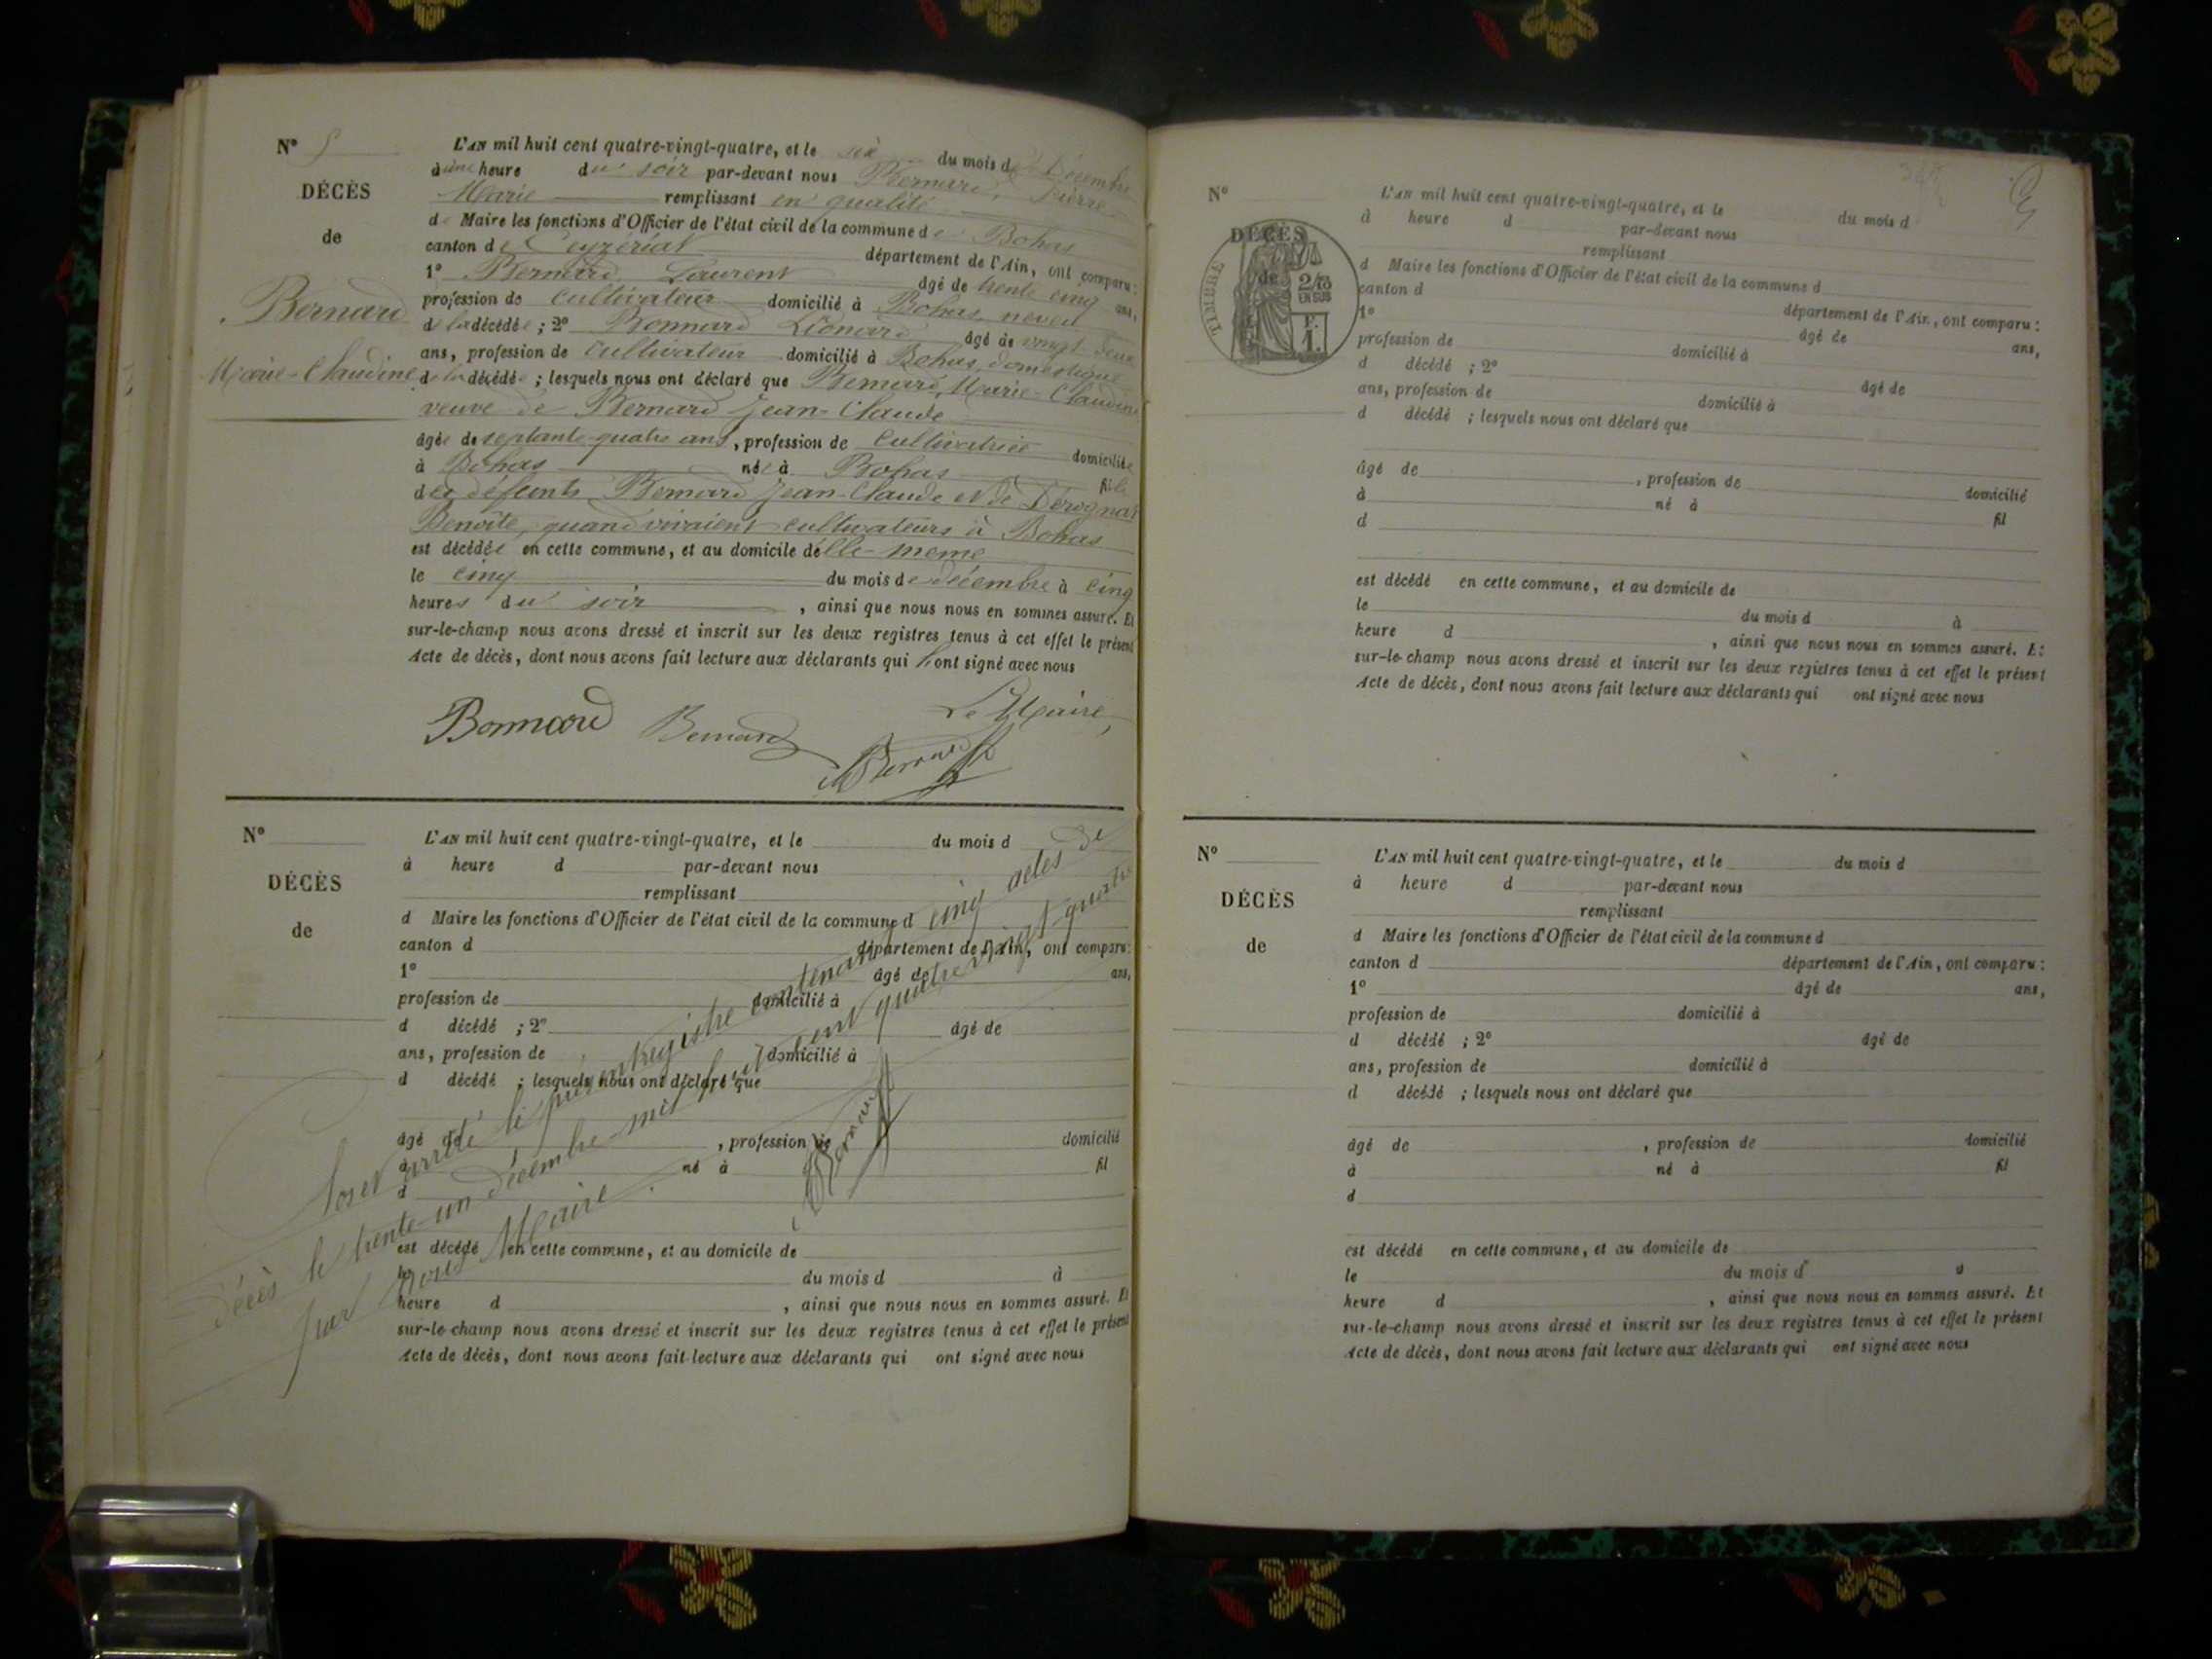 N° 5
DÉCÈS
de
Bernard
Marie-Claudine
L'AN mil huit cent quatre-vingt-quatre, et le six du mois de Décembre
à une heure du soir par-devant nous Bernard, Pierre
Marie remplissant en qualité
de Maire les fonctions d'Officier de l'état civil de la commune de Bohas
canton de Ceyzériat département de l'Ain, ont comparu:
1° Bernard Laurent âgé de trente cinq ans,
profession de cultivateur domicilié à Bohas, neveu
de la décédée; 2° Bonnard Léonard âgé de vingt-deux
ans, profession de cultivateur domicilié à Bohas, domestique
de la décédée; lesquels nous ont déclaré que Bernard, Marie-Claudine
veuve de Bernard Jean-Claude
âgée de septante-quatre ans, profession de cultivatrice domiciliée
à Bohas née à Bohas fille
des défunts Bernard Jean-Claude et de Derognat
Benoîte, quand vivaient cultivateurs à Bohas
est décédée en cette commune, et au domicile d'elle-meme
le cinq du mois de décembre à cinq
heures du soir, ainsi que nous nous en sommes assuré. Et
sur-le-champ nous avons dressé et inscrit sur les deux registres tenus à cet effet le présent
Acte de décès, dont nous avons fait lecture aux déclarants qui l'ont signé avec nous
Le Maire,
Bonnard Bernard
Bernard
N°
DÉCÈS
de
L'AN mil huit cent quatre-vingt-quatre, et le du mois d
à heure d par-devant nous
remplissant
d Maire les fonctions d'Officier de l'état civil de la commune d
canton d département de l'Ain, ont comparu:
1° âgé de ans,
profession de domicilié à
d décédé ; 2° âgé de
ans, profession de domicilié à
d décédé ; lesquels nous ont déclaré que
âgé de , profession de domicilié
à né à fil
d
est décédé en cette commune, et au domicile de
le du mois d à
heure d , ainsi que nous nous en sommes assuré. Et
sur-le-champ nous avons dressé et inscrit sur les deux registres tenus à cet effet le présent
Acte de décès, dont nous avons fait lecture aux déclarants qui ont signé avec nous
Clos et arrêté le présent registre contenant cinq actes de
décès le trente-un décembre mil huit cent quatre vingt quatre
par nous Maire.
Bernard
N°
DÉCÈS
de
TIMBRE
2/10
EN SUS
1 F.
L'AN mil huit cent quatre-vingt-quatre, et le du mois d
à heure d par-devant nous
remplissant
d Maire les fonctions d'Officier de l'état civil de la commune d
canton d département de l'Ain, ont comparu:
1° âgé de ans,
profession de domicilié à
d décédé ; 2° âgé de
ans, profession de domicilié à
d décédé ; lesquels nous ont déclaré que
âgé de , profession de domicilié
à né à fil
d
est décédé en cette commune, et au domicile de
le du mois d à
heure d , ainsi que nous nous en sommes assuré. Et
sur-le-champ nous avons dressé et inscrit sur les deux registres tenus à cet effet le présent
Acte de décès, dont nous avons fait lecture aux déclarants qui ont signé avec nous
N°
DÉCÈS
de
L'AN mil huit cent quatre-vingt-quatre, et le du mois d
à heure d par-devant nous
remplissant
d Maire les fonctions d'Officier de l'état civil de la commune d
canton d département de l'Ain, ont comparu:
1° âgé de ans,
profession de domicilié à
d décédé ; 2° âgé de
ans, profession de domicilié à
d décédé ; lesquels nous ont déclaré que
âgé de , profession de domicilié
à né à fil
d
est décédé en cette commune, et au domicile de
le du mois d à
heure d , ainsi que nous nous en sommes assuré. Et
sur-le-champ nous avons dressé et inscrit sur les deux registres tenus à cet effet le présent
Acte de décès, dont nous avons fait lecture aux déclarants qui ont signé avec nous